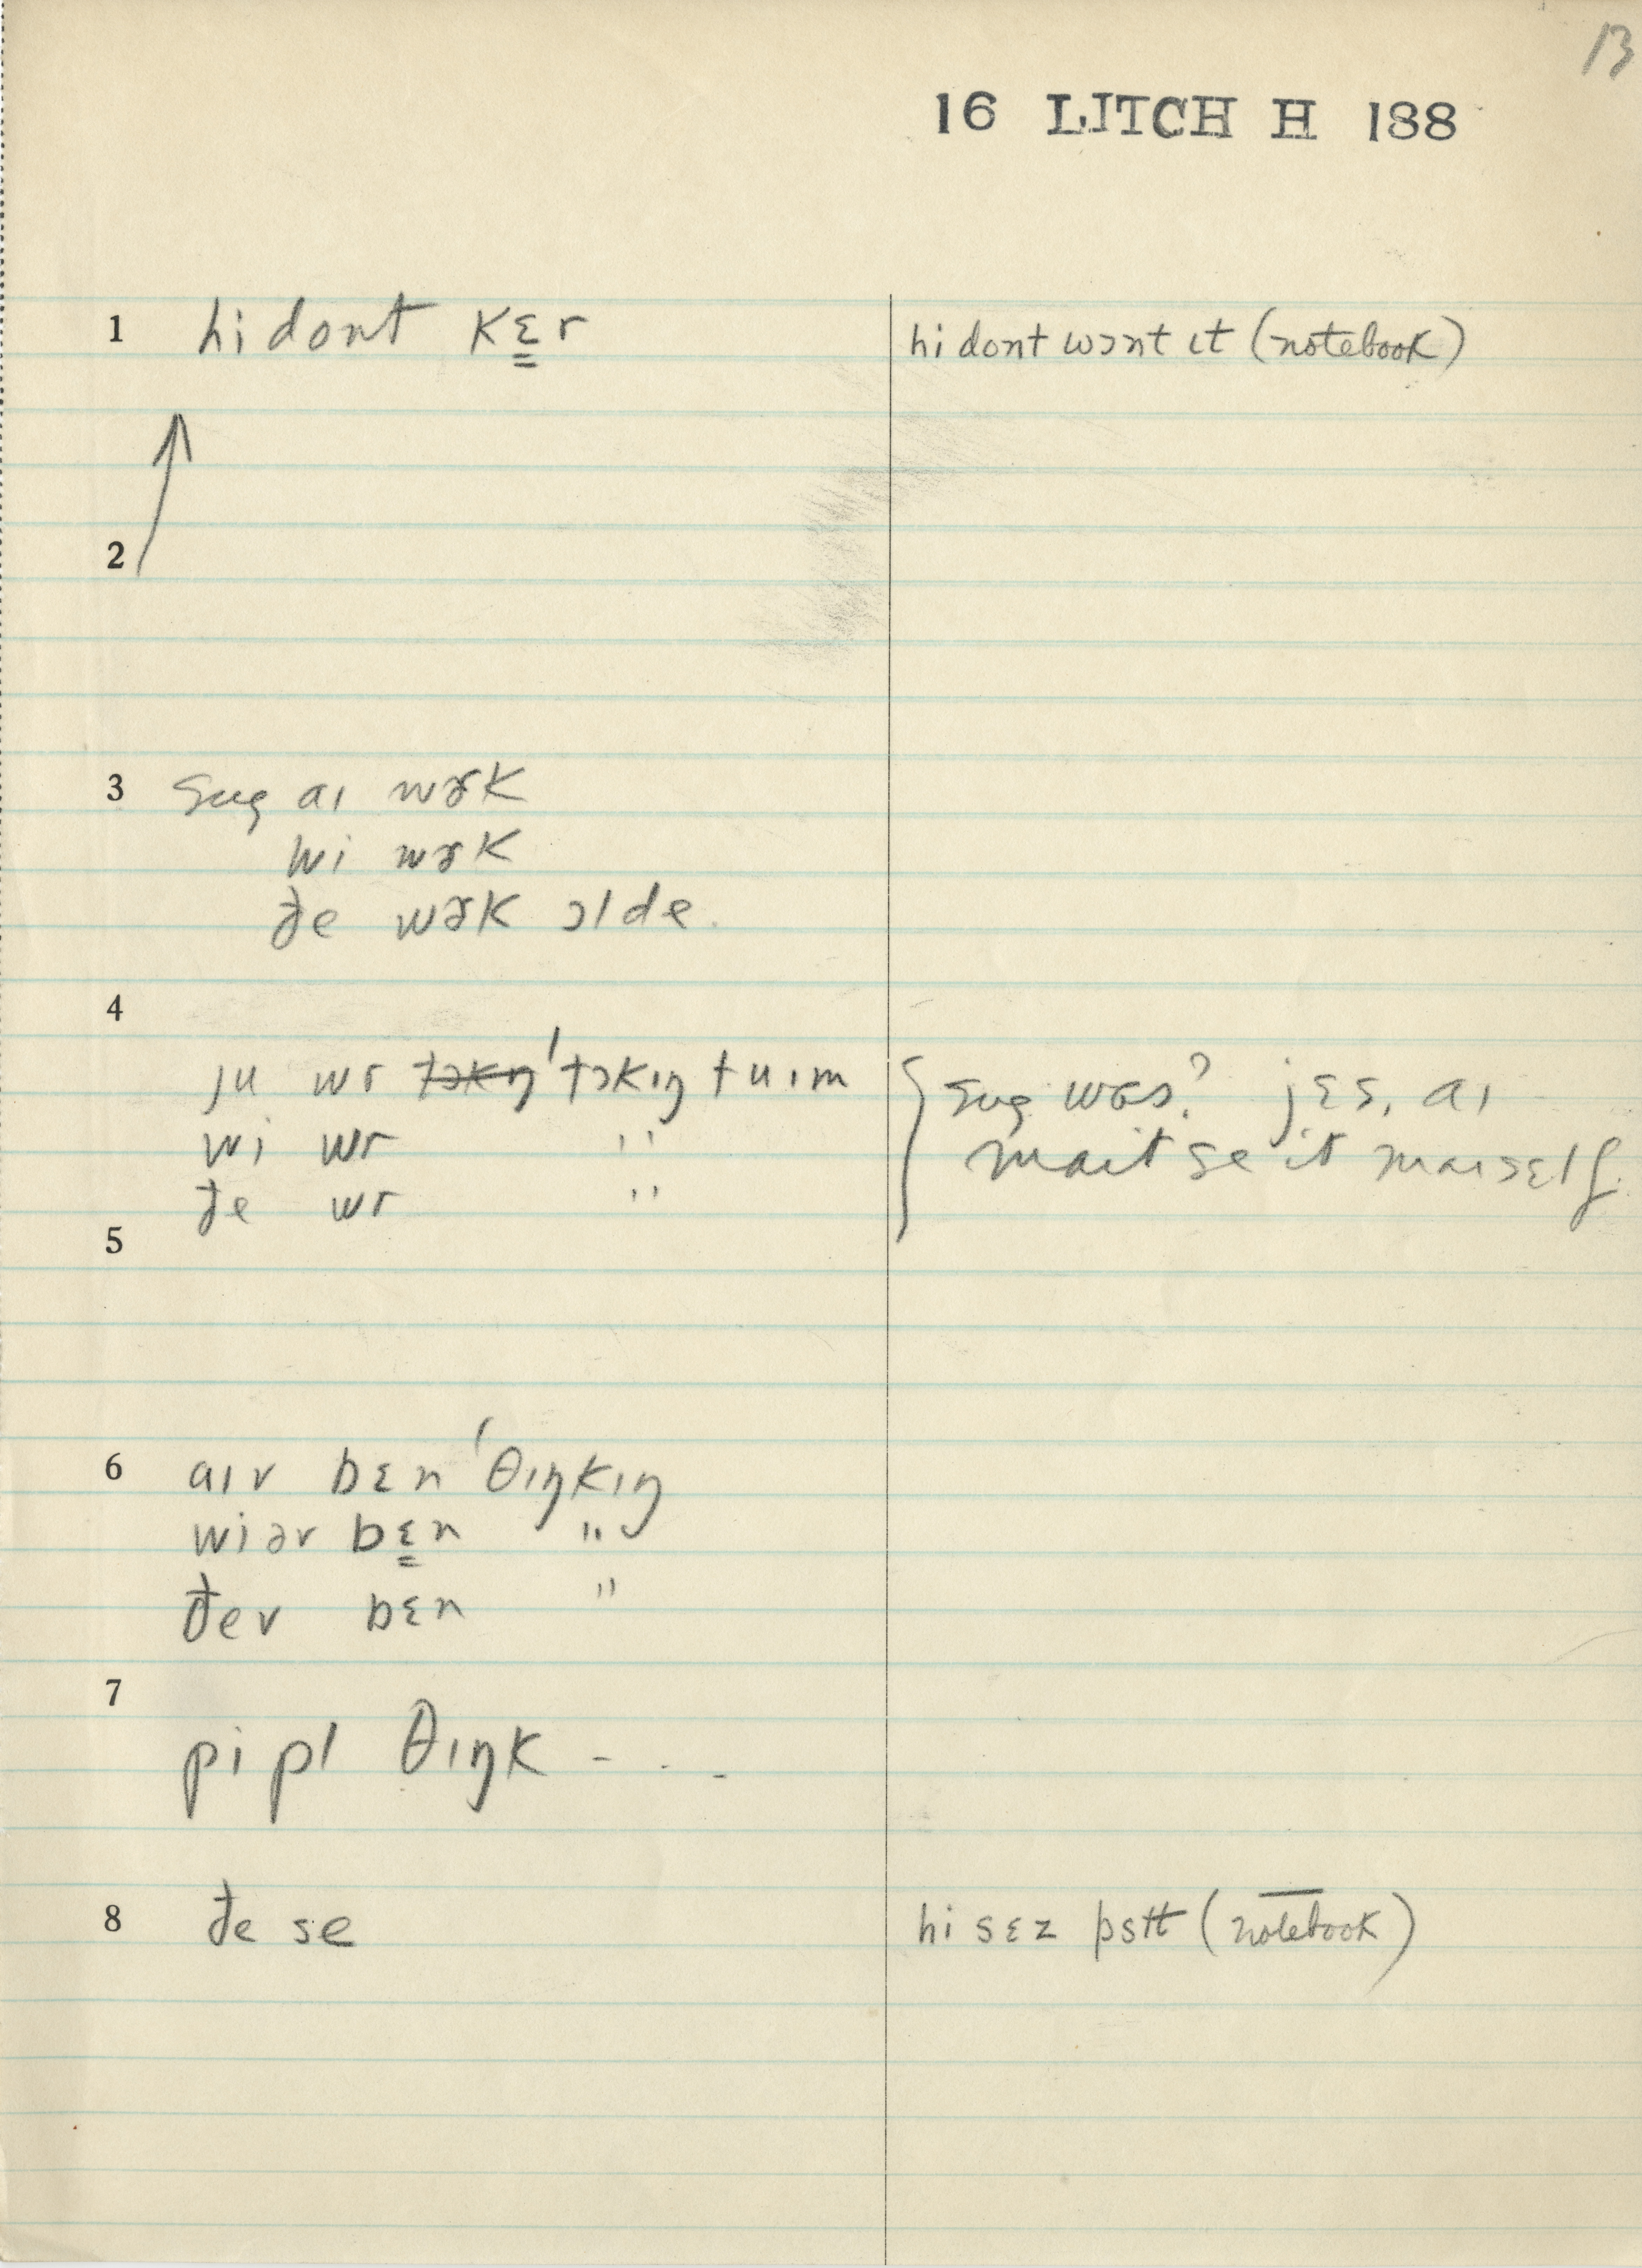 13
16 LITCH H 188
1 hi dont kɛ̳r
hi dont wɔnt ɪt (notebook)
2
3 sug aɪ wɚk
wi wɚk
đe wɚk ɔl de.
4
ju wr tɔkŋ 'tɔkɪŋ tu ɪm
wi wr "
đe wr "
{ sug was? jɛs, aɪ
maɪt se it maɪsɛlf.
5
6 aɪv bɛn 'θɪŋkɪŋ
wi əv bɛ̳n "
đev bɛn "
7
pipl θɪŋk - . . -
8 đe se
hi sɛz pstt (notebook)